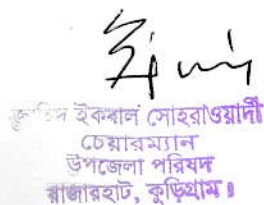 ইকবাল সোহরাওয়ার্দী
চেয়ারম্যান
উপজেলা পরিষদ
রাজারহাট, কুড়িগ্রাম।